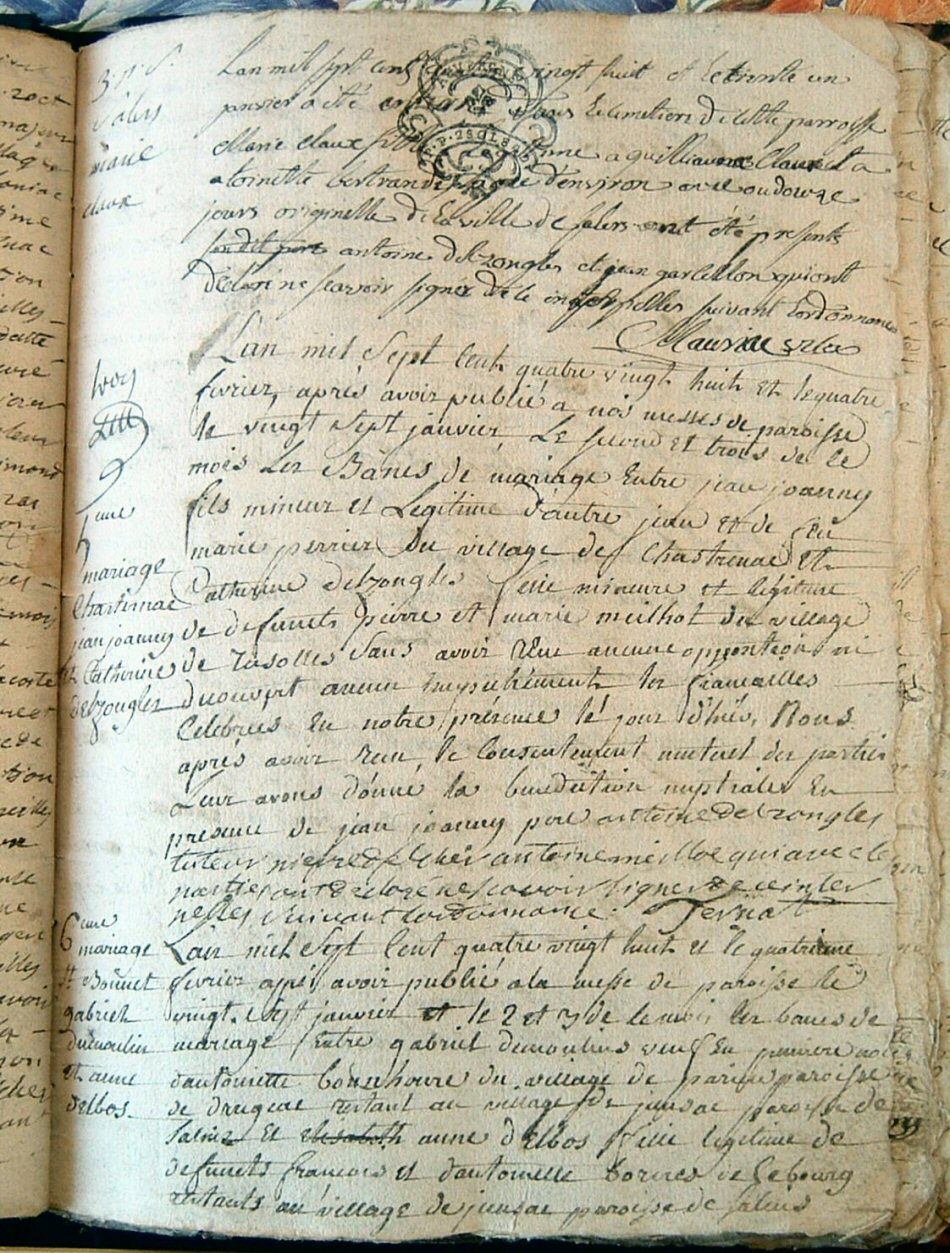 3. p. s.
Salers
marie
claux
Lan mil sept cens quatre vingt huit et le trente un
janvier a été enterré dans le cimetiere de cette parroisse
Marie Claux fille a guilliaume Claux et a
atoinette bertrande agée d'environ onze ou douze
jours originelle de la ville de salers ont été presents
son dit pere antoine delzongles et jean garcellon qui ont
declaré ne scavoir signer de ce suivant lordonnance
Lan mil sept cent quatre vingt huit et le quatre
fevrier, aprés avoir publié a nos messes de paroisse
le vingt sept janvier, le second et trois de ce
mois les Bánes de mariage Entre jean joanny
fils mineur et Legitime d'autre jean et de feu
marie perrier du village de Chastrenac Et
Catherine delzongles fille mineure et legitime
de defunts pierre et marie meilhot du village
de sans avoir Eue aucune opposition ni
decouvert aucun Empechement les fiancailles
Celebrées En notre présence le jour d'hier, Nous
aprés avoir recu le Consentement mutuel des parties
Leur avons donné la benediction nuptiale En
presence de jean joanny pere antoine delzongles
tuteur pierre antoine meilloc qui avec les
parties ont declaré ne scavoir signer de ce inter
pellés suivant lordonnance. Ternat
5 eme
mariage
Chastrenac
jean joanny
et Catherine
delzongles
6 eme
mariage
St Bonnet
gabriel
dumoulin
et anne
delbos.
Lan mil sept cent quatre vingt huit et le quatrieme
fevrier aprés avoir publié a la messe de paroisse le
vingt. sept janvier et le 2 et 3 de ce mois les banes de
mariage Entre gabriel demoulins veuf En premiere noces
dantoinette bonnhoure du village de paroisse
de drugeac restant au village de jensac paroisse de
Salins Et elisabeth anne delbos fille legitime de
defunts francois et dantoinette de le bourg
restants au village de jensac paroisse de salins